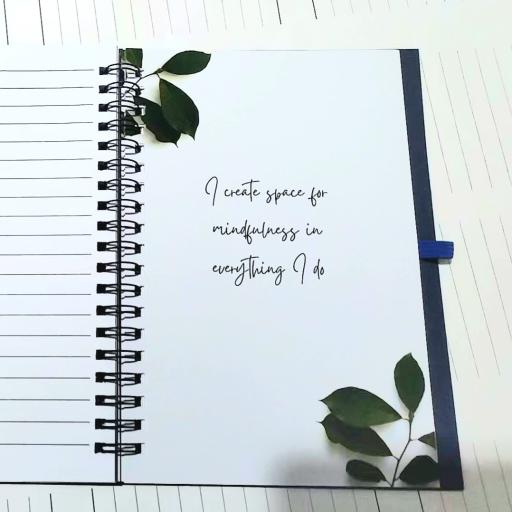 I create space for
mindfulness in
everything I do